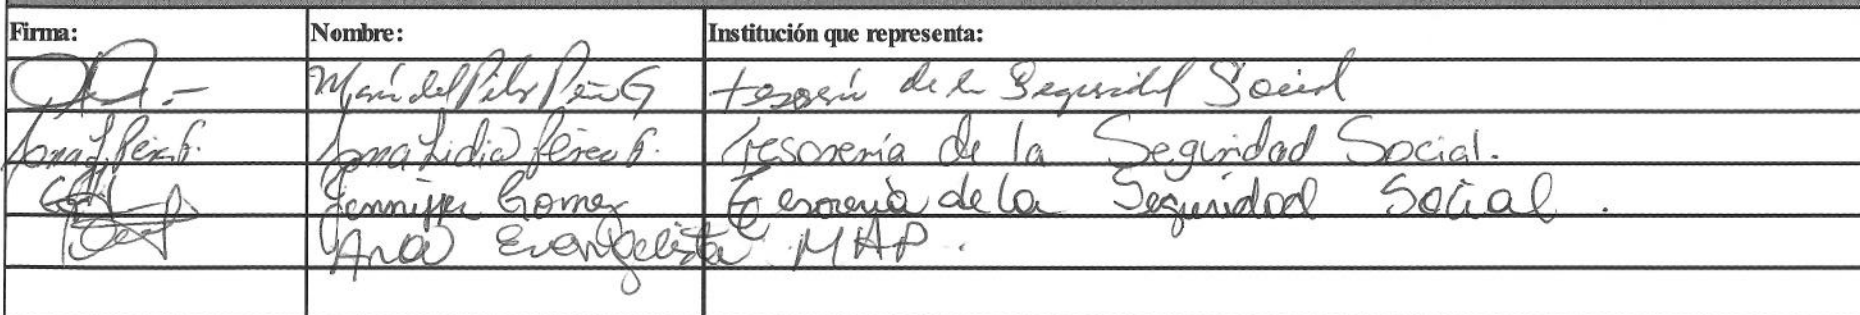 Firma: Nombre: Institución que representa:
María del Pilar Peña G tesorería de la Seguridad Social
Ana L Pérez F. Ana Lidia Pérez F. Tesorería de la Seguridad Social.
Jennifer Gomez Tesorería de la Seguridad Social.
Ana Evangelista MAP.